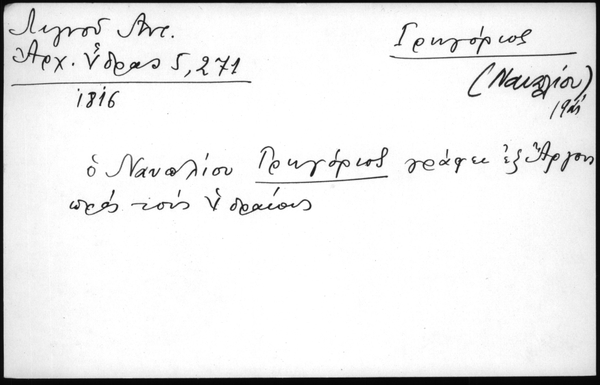 Λιγνοῦ Ἀντ.
Ἀρχ. Ὕδρας 5, 271
1816
Γρηγόριος
(Ναυπλίου)
ὁ Ναυπλίου Γρηγόριος γράφει ἐξ Ἄργους
πρός τούς Ὑδραίους